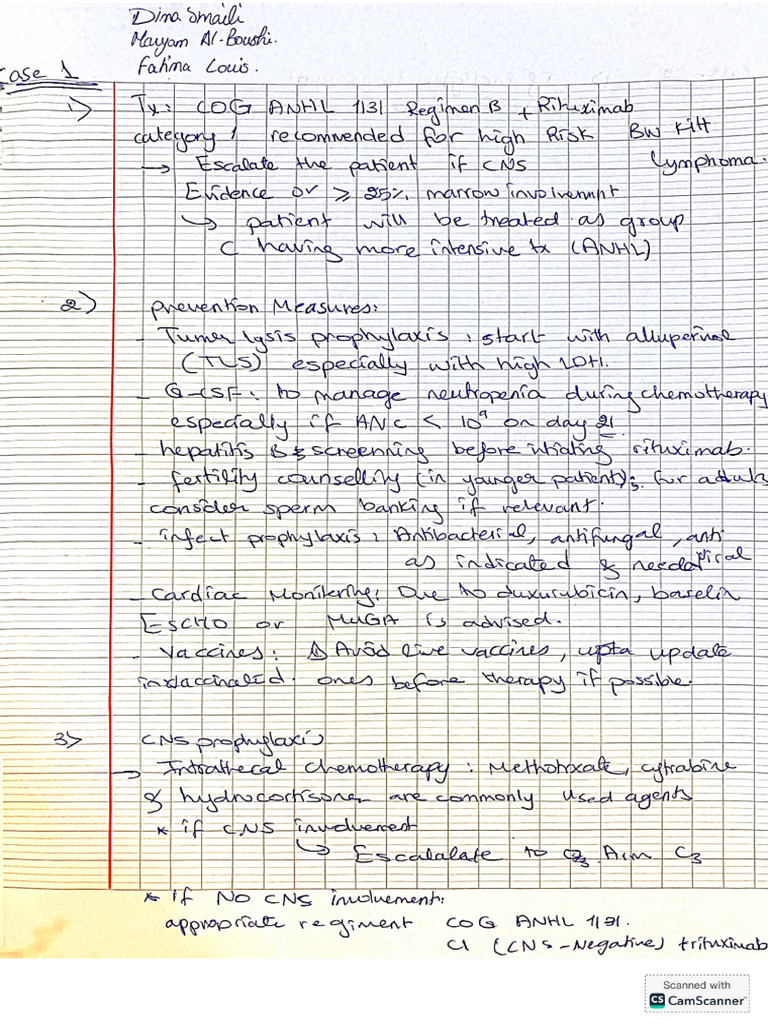 Dina Smaili
Maryam Al-Boushi.
Fatima Louis.
Case 1
1) Tx: COG ANHL 1131 Regimen B + Rituximab
category 1 recommended for high Risk BurKitt
lymphoma.
→ Escalate the patient if CNS
Evidence or ≥ 25% marrow involvemnt
↳ patient will be treated as group
C having more intensive tx (ANHL)
2) prevention Measures:
- Tumer lysis prophylaxis : start with alluperinol
(TLS) especially with high LDH.
- G-CSF: to manage neutropenia during chemotherapy
especially if ANC < 10⁹ on day 21
- hepatitis B screenning before intiating rituximab.
- fertility counselling (in younger patient); for adults
consider sperm banking if relevant.
- infect prophylaxis : Antibacterial, antifungal, anti
viral
as indicated & needed
- Cardiac Monitering: Due to duxurubicin, baselin
ESCHO or MUGA is advised.
- Vaccines: Avoid live vaccines, update
inactivated ones before therapy if possible.
3) CNS prophylaxis
→ Intrathecal chemotherapy : Methotrxate, cytrabine
& hydrocortisone are commonly used agents
* if CNS involvement
↳ Escalalate to Arm C3
* if NO CNS involvement:
appropriate regiment COG ANHL 1131.
C1 (CNS-Negative) + rituximab
Scanned with
CS CamScanner